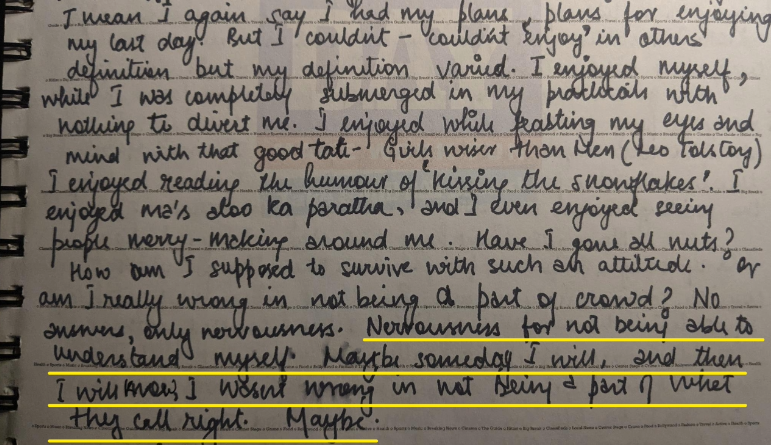 I mean I again say I had my plans, plans for enjoying
my last day. But I couldn't - couldn't 'enjoy' in others'
definition but my definition varied. I enjoyed myself,
while I was completely submerged in my practicals with
nothing to divert me. I enjoyed while feasting my eyes and
mind with that good tale- Girls wiser than Men (Leo Tolstoy)
I enjoyed reading the humour of 'kissing the snowflakes'. I
enjoyed ma's aloo ka paratha, and I even enjoyed seeing
people merry-making around me. Have I gone all nuts?
How am I supposed to survive with such an attitude. Or
am I really wrong in not being a part of crowd? No
answers, only nervousness. Nervousness for not being able to
understand myself. Maybe someday I will, and then
I will know, I wasn't wrong in not being a part of what
they call right. Maybe.